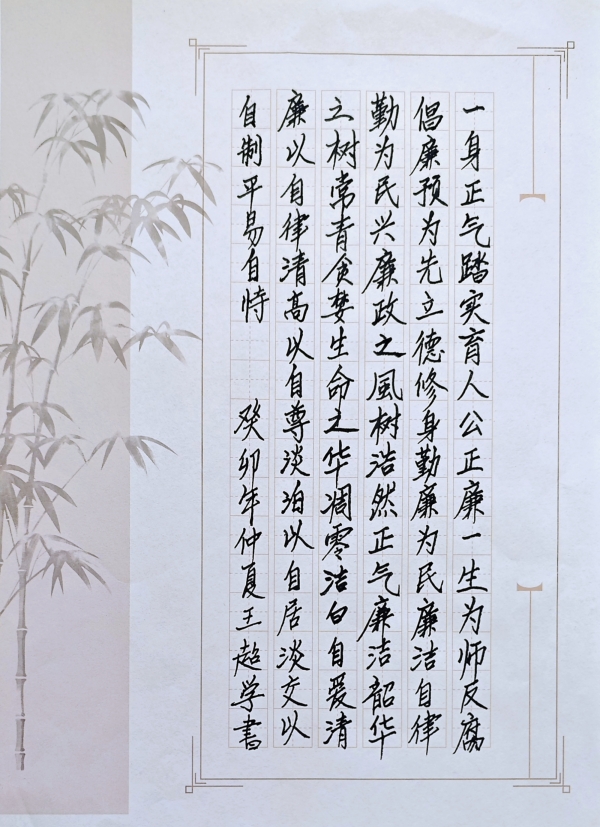 一身正气踏实育人公正廉一生为师反腐
倡廉预为先立德修身勤廉为民廉洁自律
勤为民兴廉政之風树浩然正气廉洁韶华
之树常青贪婪生命之华凋零洁白自爱清
廉以自律清高以自尊淡泊以自居淡交以
自制平易自恃
癸卯年仲夏王超学書